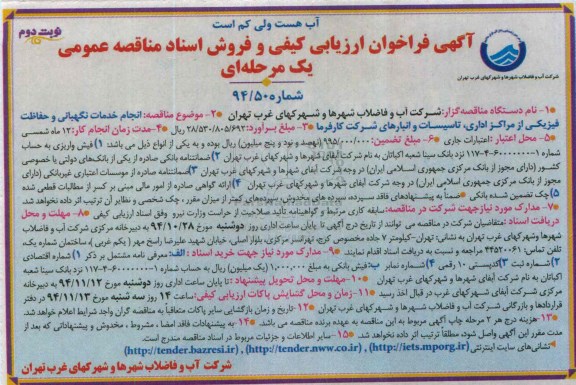 آب هست ولی کم است
نوبت دوم
آگهی فراخوان ارزیابی کیفی و فروش اسناد مناقصه عمومی
یک مرحله‌ای
شرکت آب و فاضلاب شهرها و شهرکهای غرب تهران
شماره ۹۴/۵۰
۱- نام دستگاه مناقصه‌گزار: شرکت آب و فاضلاب شهرها و شهرکهای غرب تهران ۲- موضوع مناقصه: انجام خدمات نگهبانی و حفاظت
فیزیکی از مراکز اداری، تاسیسات و انبارهای شرکت کارفرما ۳- مبلغ برآورد: ۲۸/۵۳۰/۸۰۵/۶۹۲ ریال ۴- مدت زمان انجام کار: ۱۲ ماه شمسی
۵- محل اعتبار: اعتبارات جاری ۶- مبلغ تضمین: ۹۹۵/۰۰۰/۰۰۰ (نهصد و نود و پنج میلیون) ریال بوده و به یکی از انواع ذیل می‌باشد: ۱) فیش واریزی به حساب
شماره ۱-۱۱۷-۴-۶۰۰۰۰۰۱ نزد بانک سینا شعبه اکباتان به نام شرکت آبفای شهرها و شهرکهای غرب تهران ۲) ضمانتنامه بانکی صادره از یکی از بانک‌های دولتی یا خصوصی
کشور (دارای مجوز از بانک مرکزی جمهوری اسلامی ایران) در وجه شرکت آبفای شهرها و شهرکهای غرب تهران ۳) ضمانتنامه صادره از موسسات اعتباری غیربانکی (دارای
مجوز از بانک مرکزی جمهوری اسلامی ایران) در وجه شرکت آبفای شهرها و شهرکهای غرب تهران ۴) ارائه گواهی صادره از امور مالی مبنی بر کسر از مطالبات قطعی شده
۵) چک تضمین شده بانکی ضمناً به پیشنهادهای فاقد سپرده، سپرده های مخدوش، سپرده‌های کمتر از میزان مقرر، چک شخصی و نظایر آن ترتیب اثر داده نخواهد شد.
۷- مدارک مورد نیاز جهت شرکت در مناقصه: سابقه کاری مرتبط و گواهینامه تأئید صلاحیت از حراست وزارت نیرو وفق اسناد ارزیابی کیفی ۸- مهلت و محل
دریافت اسناد: متقاضیان شرکت در مناقصه می توانند از تاریخ درج آگهی تا پایان ساعت اداری روز دوشنبه مورخ ۹۴/۱۰/۲۸ به دبیرخانه مرکزی شرکت آب و فاضلاب
شهرها وشهرکهای غرب تهران به نشانی: تهران-کیلومتر ۷ جاده مخصوص کرج، تهرانسر مرکزی، بلوار اصلی، خیابان شهید علیرضا راسخ مهر (یکم غربی)، ساختمان شماره یک،
تلفن تماس: ۴۴۵۲۰۰۶۱ مراجعه و نسبت به دریافت اسناد اقدام نمایند. ۹- مدارک مورد نیاز جهت خرید اسناد: الف: معرفی نامه مشتمل بر ذکر ۱) شماره اقتصادی
۲) شماره ثبت ۳) کدپستی ۱۰ رقمی ۴) شماره نمابر ب: فیش بانکی به مبلغ ۱/۰۰۰/۰۰۰ (یک میلیون) ریال به حساب شماره ۱-۱۱۷-۴-۶۰۰۰۰۰۱ نزد بانک سینا شعبه
اکباتان به نام شرکت آبفای شهرها و شهرکهای غرب تهران ۱۰- مهلت و محل تحویل پیشنهاد: تا پایان ساعت اداری روز دوشنبه مورخ ۹۴/۱۱/۱۲ به دبیرخانه
مرکزی شرکت آبفای شهرکهای غرب تهران در قبال اخذ رسید ۱۱- زمان و محل گشایش پاکات ارزیابی کیفی: ساعت ۱۴ روز سه شنبه مورخ ۹۴/۱۱/۱۳ در دفتر
قراردادها و بازرگانی شرکت آب و فاضلاب شهرها و شهرکهای غرب تهران ۱۲- تاریخ و زمان بازگشایی سایر پاکات متعاقباً به مناقصه گران واجد شرایط اعلام خواهد شد.
۱۳- هزینه درج هر ۲ مرحله چاپ آگهی مربوط به این مناقصه به عهده برنده مناقصه می باشد. ۱۴- به پیشنهادات فاقد امضا، مشروط، مخدوش و پیشنهاداتی که بعد از
مدت مقرر این آگهی واصل شود، مطلقاً ترتیب اثر داده نخواهد شد. ۱۵- سایر اطلاعات و جزئیات مربوط در اسناد مناقصه مندرج است.
نشانی‌های سایت اینترنتی (http://iets.mporg.ir) ، (http://tender.nww.co.ir) ، (http://tender.bazresi.ir)
شرکت آب و فاضلاب شهرها و شهرکهای غرب تهران